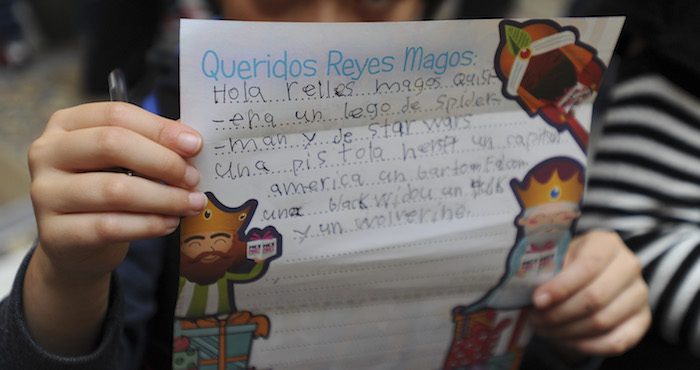 Queridos Reyes Magos:
Hola relles magos quisi-
-era un lego de spider-
-man y de star wars
una pistola un capitan
america un
una blackwidou un Hulk
y un wolverine.